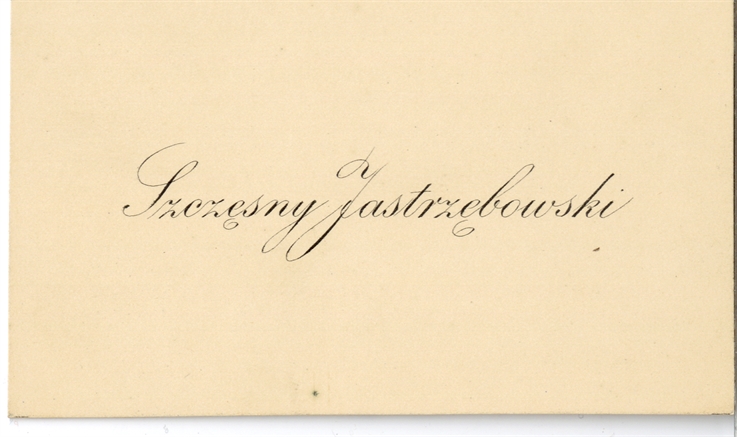 Szczęsny Jastrzębowski